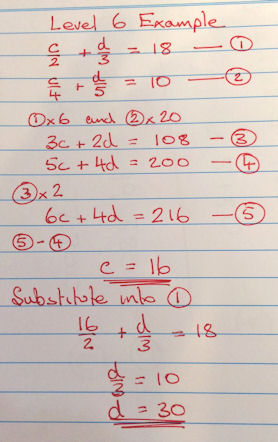 Level 6 Example
c/2 + d/3 = 18 — ①
c/4 + d/5 = 10 — ②
①x6 and ②x20
3c + 2d = 108 — ③
5c + 4d = 200 — ④
③x2
6c + 4d = 216 — ⑤
⑤-④
c = 16
Substitute into ①
16/2 + d/3 = 18
d/3 = 10
d = 30